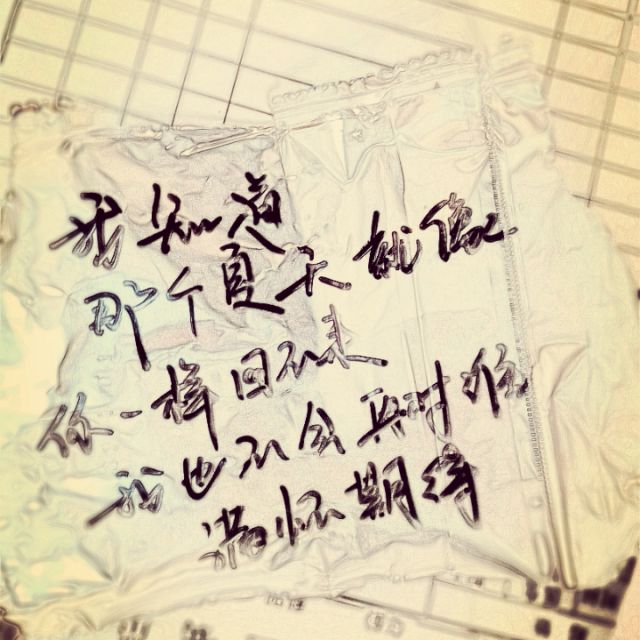 我知道
那个夏天就像
你一样回不来
我也不会再对谁
满怀期待